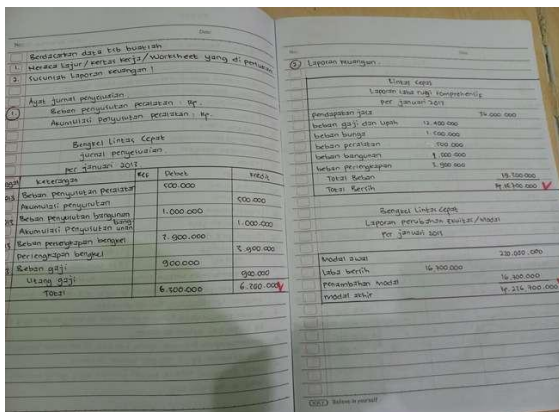 No.
Date:
Berdasarkan data tsb buatlah
1. Neraca lajur / kertas kerja / worksheet yang di perlukan
2. Susunlah Laporan keuangan !
Ayat jurnal penyesuaian.
1. Beban penyusutan peralatan : Rp.
Akumulasi penyusutan peralatan : Rp.
Bengkel Lintas Cepat
Jurnal penyesuaian.
Per januari 2013
Keterangan Ref Debet Kredit
Beban penyusutan peralatan 500.000
Akumulasi penyusutan 500.000
Beban penyusutan bangunan 1.000.000
Akumulasi penyusutan bangunan 1.000.000
Beban perlengkapan bengkel 3.900.000
Perlengkapan bengkel 3.900.000
Beban gaji 900.000
Utang gaji 900.000
Total 6.300.000 6.300.000
No.
Date
2. Laporan keuangan.
Lintas Cepat
Laporan laba rugi komprehensif
Per januari 2013
pendapatan jasa
beban gaji dan upah
beban bunga
beban peralatan 500.000
beban bangunan 1.000.000
beban perlengkapan
Total Beban
Total Bersih
Bengkel Lintas Cepat
Laporan perubahan Equitas/Modal
Per januari 2013
Modal awal
laba bersih 16.700.000
penambahan modal 16.700.000
modal akhir
Believe in yourself